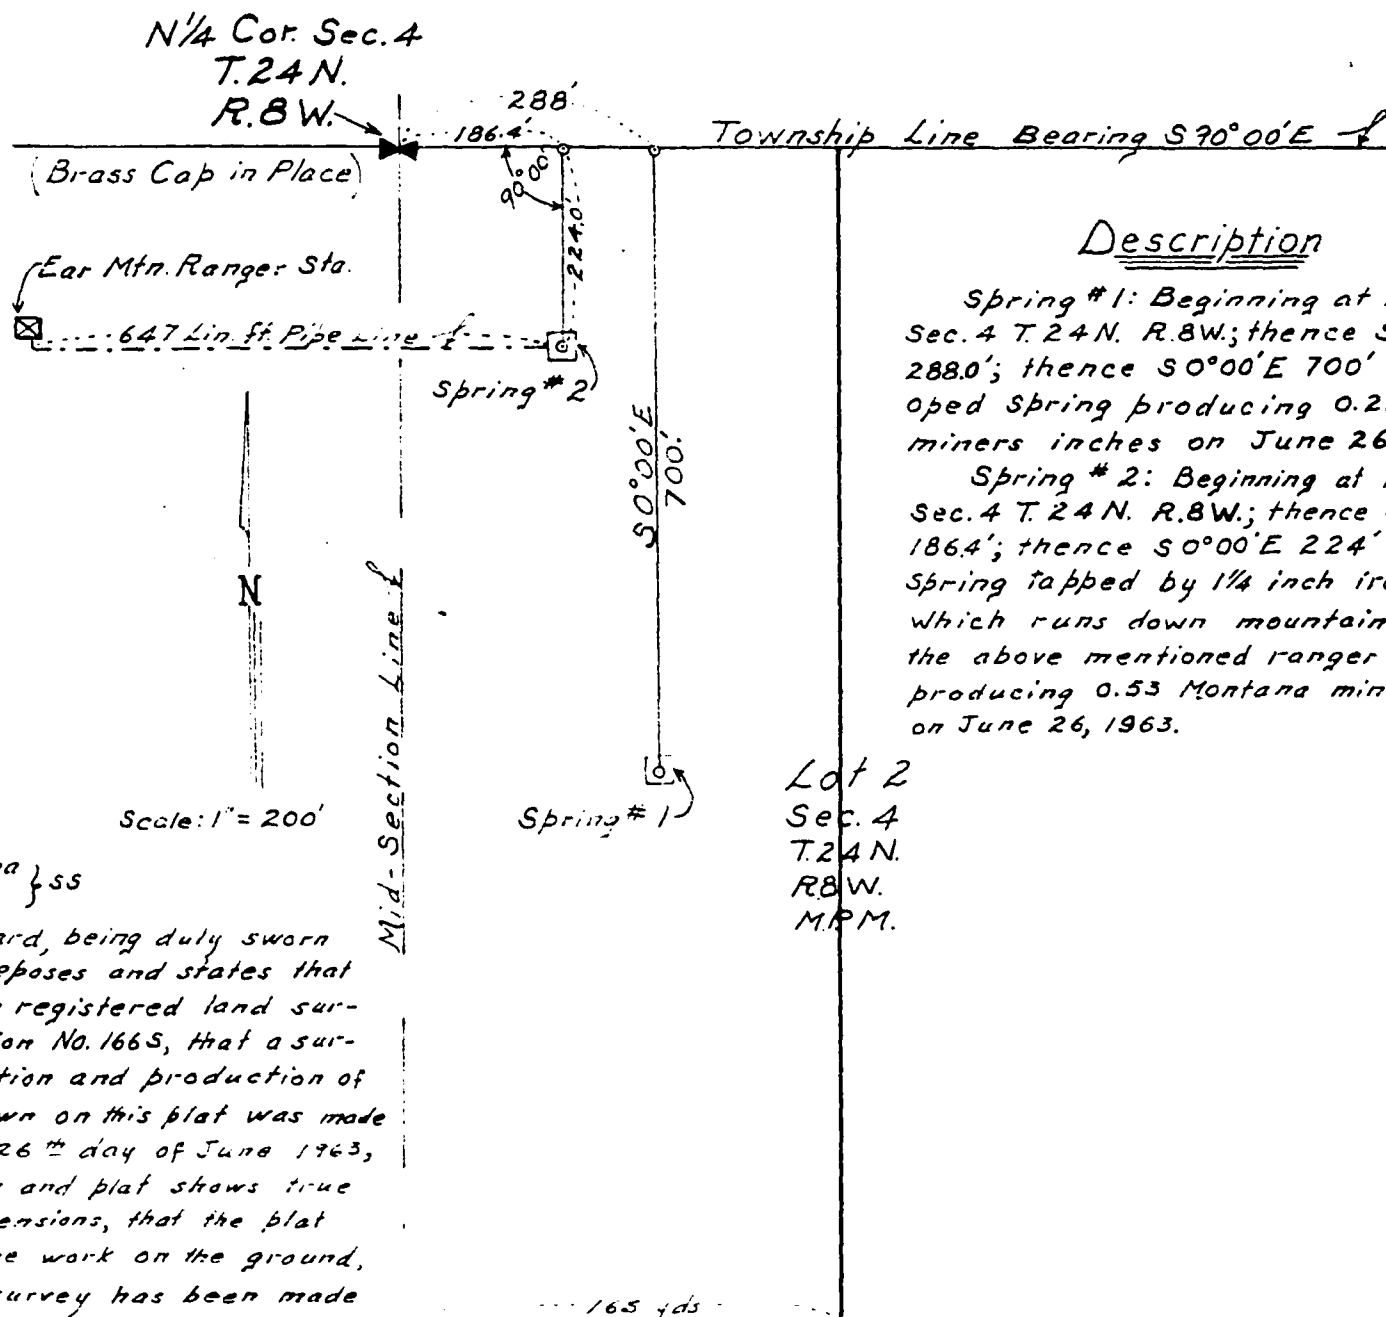 N1/4 Cor. Sec. 4
T. 24 N.
R. 8 W.
(Brass Cap in Place)
288'
186.4'
Township Line Bearing S 90°00'E
90°00'
224.0'
Ear Mtn. Ranger Sta.
647 Lin. ft. Pipe Line
Spring # 2
S 0°00'E
700.'
N
Scale: 1" = 200'
Mid-Section Line
Spring # 1
Lot 2
Sec. 4
T. 24 N.
R 8 W.
M.P.M.
Description
Spring #1: Beginning at
Sec. 4 T. 24 N. R. 8 W.; thence S
288.0'; thence S 0°00'E 700'
oped Spring producing 0.2
miners inches on June 26
Spring # 2: Beginning at
Sec. 4 T. 24 N. R. 8 W.; thence
186.4'; thence S 0°00'E 224'
Spring tapped by 1 1/4 inch iro
which runs down mountain
the above mentioned ranger
producing 0.53 Montana min
on June 26, 1963.
a } SS
ard, being duly sworn
eposes and states that
registered land sur-
on No. 166S, that a sur-
tion and production of
wn on this plat was made
26th day of June 1963,
and plat shows true
ensions, that the plat
e work on the ground,
survey has been made
165 yds